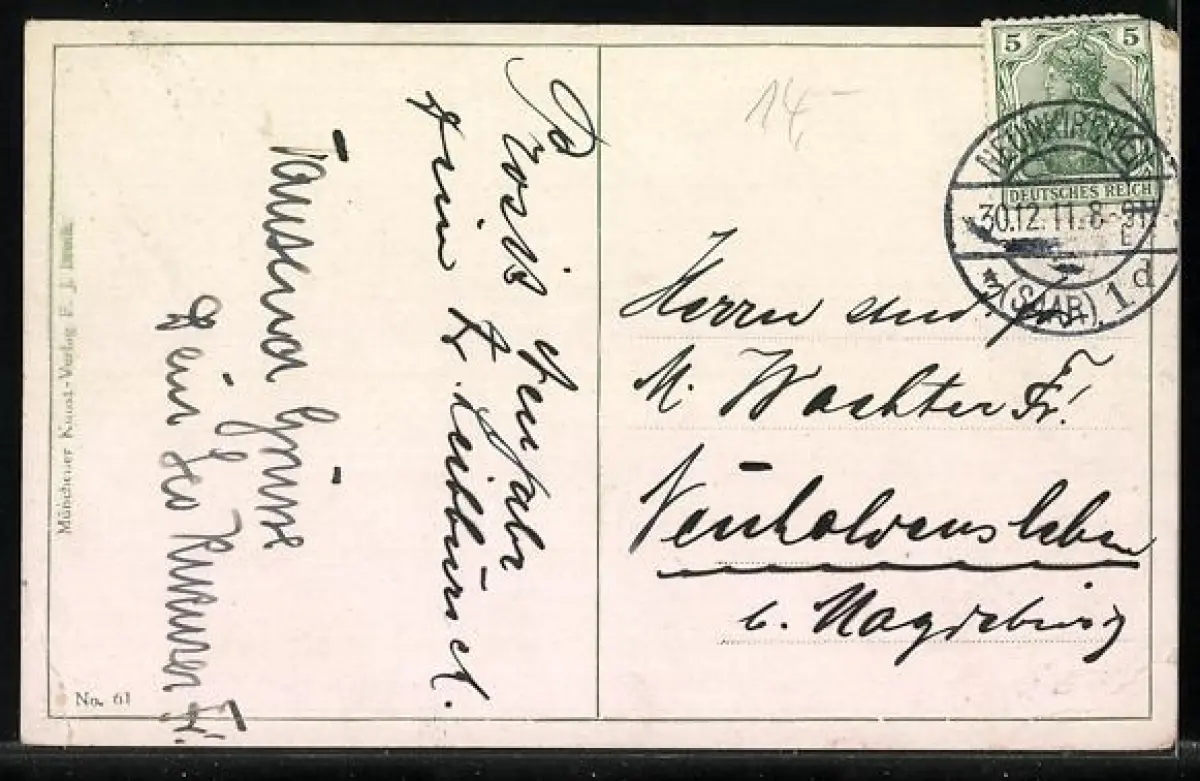 Prosit Neujahr
Dein L. Leibbursch.
Tausend Grüsse
Dein Leo
Münchener Kunst-Verlag
No. 61
14,-
5 5
DEUTSCHES REICH
NEUNKIRCHEN
30.12.11.8-9N.
* (SAAR) 1 d
Herrn und
M. Wachter Fr!
Neuhaldensleben
b. Magdeburg